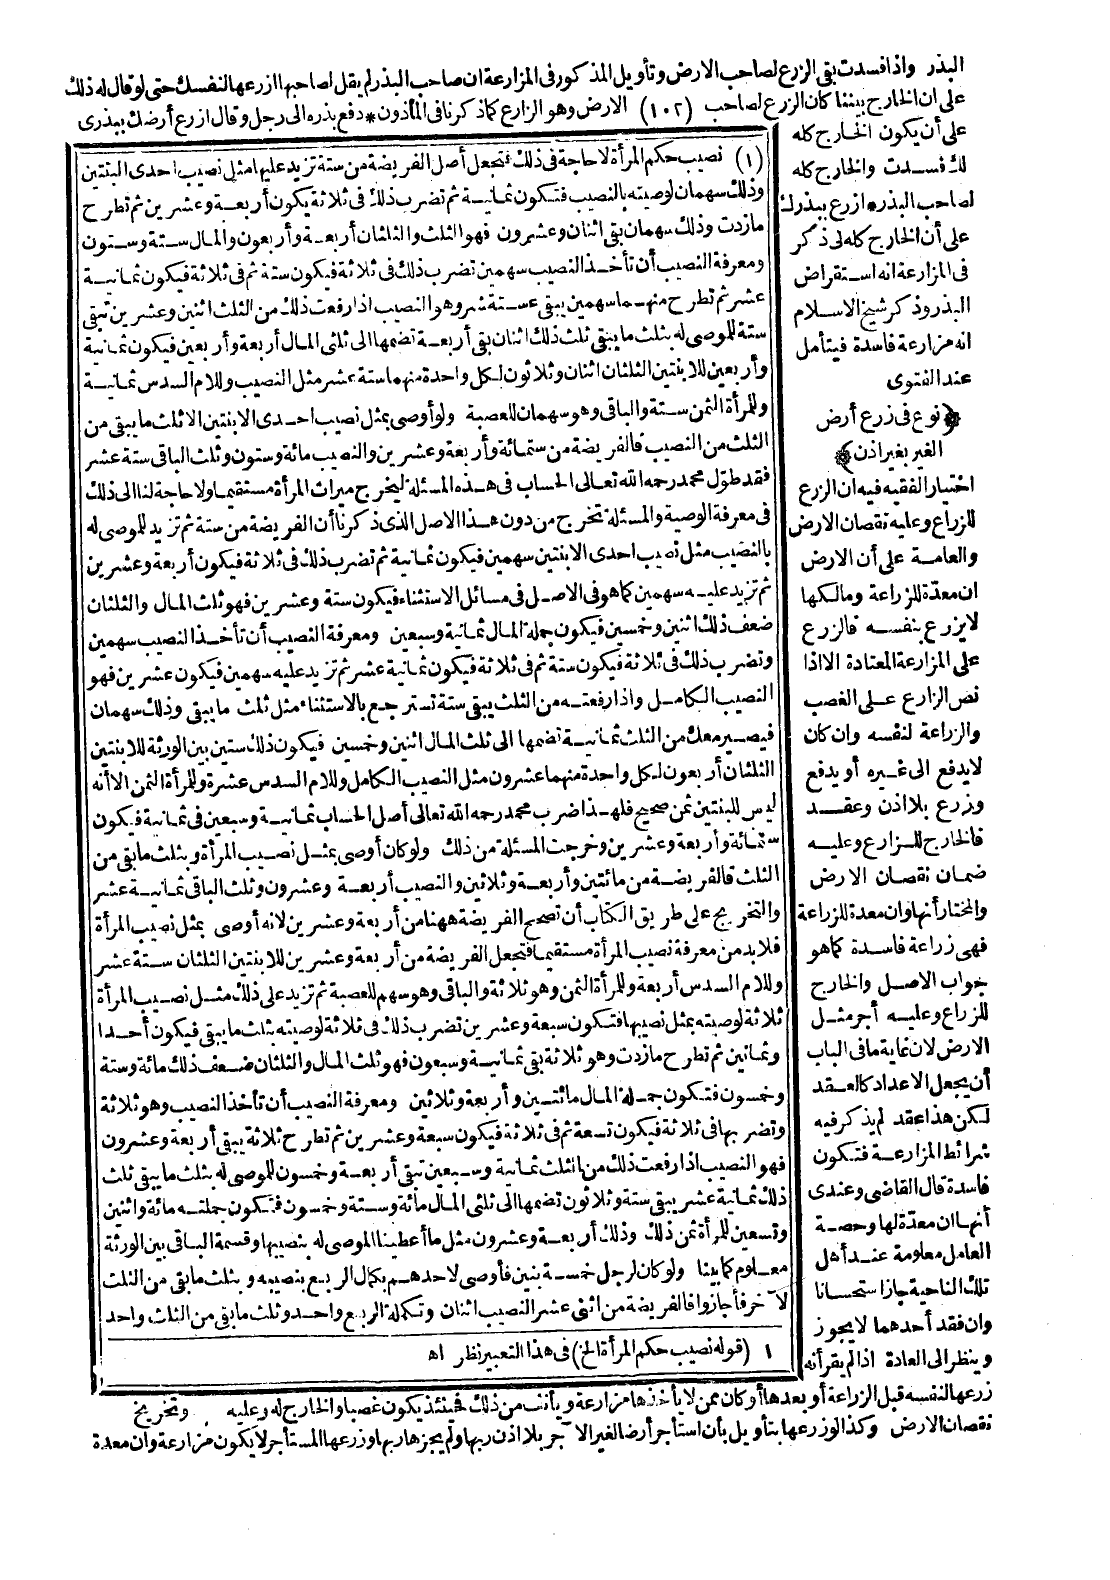 البذر واذا فسدت بقى الزرع لصاحب الارض وتأويل المذكور فى المزارعة ان صاحب البذر لم يقل لصاحبها ازرعها لنفسك حتى لو قال له ذلك
على ان الخارج بيننا كان الزرع لصاحب (١٠٢) الارض وهو الزارع كما ذكرنا فى المأذون * دفع بذره الى رجل وقال ازرع أرضك ببذرى
على أن يكون الخارج كله
لك فسدت والخارج كله
لصاحب البذر * ازرع ببذرك
على أن الخارج كله لى ذكر
فى المزارعة انه استقراض
البذر وذكر شيخ الاسلام
انه مزارعة فاسدة فيتأمل
عند الفتوى
﴿ نوع فى زرع أرض
الغير بغير اذن ﴾
اختيار الفقيه فيه ان الزرع
للزراع وعليه نقصان الارض
والعامة على أن الارض
ان معدّة للزراعة ومالكها
لايزرع بنفسه فالزرع
على المزارعة المعتادة الا اذا
نص الزارع على الغصب
والزراعة لنفسه وان كان
لايدفع الى غيره أو يدفع
وزرع بلا اذن وعقد
فالخارج للزارع وعليه
ضمان نقصان الارض
والمختار أنها وان معدة للزراعة
فهى زراعة فاسدة كما هو
جواب الاصل والخارج
للزراع وعليه أجر مثل
الارض لان غاية ما فى الباب
أن يجعل الاعداد كالعقد
لكن هذا عقد لم يذكر فيه
شرائط المزارعة فتكون
فاسدة قال القاضى وعندى
أنها ان معدّة لها وحصة
العامل معلومة عند أهل
تلك الناحية جاز استحسانا
وان فقد أحدهما لايجوز
وينظر الى العادة اذا لم يقر أنه
زرعها لنفسه قبل الزراعة أو بعدها أو كان ممن لا يأخذها مزارعة ويأنف من ذلك فحينئذ يكون غصبا والخارج له وعليه وتخريج
نقصان الارض وكذا لو زرعها بتأويل بأن استأجر أرضا لغير الآجر بلا اذن ربها ولم يجزها ربها وزرعها المستأجر لا يكون مزارعة وان معدة
(١) نصيب حكم المرأة لا حاجة فى ذلك فتجعل أصل الفريضة من ستة تزيد عليها مثل نصيب احدى البنتين
وذلك سهمان لوصيته بالنصيب فتكون ثمانية ثم تضرب ذلك فى ثلاثة يكون أربعة وعشرين ثم تطرح
مازدت وذلك سهمان بقى اثنان وعشرون فهو الثلث والثلثان أربعة وأربعون والمال ستة وستون
ومعرفة النصيب أن تأخذ النصيب سهمين تضرب ذلك فى ثلاثة فيكون ستة ثم فى ثلاثة فيكون ثمانية
عشر ثم تطرح منها سهمين يبقى ستة عشر وهو النصيب اذا رفعت ذلك من الثلث اثنين وعشرين تبقى
ستة للموصى له بثلث ما يبقى ثلث ذلك اثنان بقى أربعة تضمها الى ثلثى المال أربعة وأربعين فيكون ثمانية
وأربعين للابنتين الثلثان اثنان وثلاثون لكل واحدة منهما ستة عشر مثل النصيب وللام السدس ثمانية
وللمرأة الثمن ستة والباقى وهو سهمان للعصبة ولو أوصى بمثل نصيب احدى الابنتين الا ثلث ما يبقى من
الثلث من النصيب فالفريضة من ستمائة وأربعة وعشرين والنصيب مائة وستون وثلث الباقى ستة عشر
فقد طوّل محمد رحمه الله تعالى الحساب فى هذه المسئلة ليخرج ميراث المرأة مستقيما ولا حاجة لنا الى ذلك
فى معرفة الوصية والمسئلة تخرج من دون هذا الاصل الذى ذكرنا أن الفريضة من ستة ثم تزيد للموصى له
بالنصيب مثل نصيب احدى الابنتين سهمين فيكون ثمانية ثم تضرب ذلك فى ثلاثة فيكون أربعة وعشرين
ثم تزيد عليه سهمين كما هو فى الاصل فى مسائل الاستثناء فيكون ستة وعشرين فهو ثلث المال والثلثان
ضعف ذلك اثنين وخمسين فيكون جملة المال ثمانية وسبعين ومعرفة النصيب أن تأخذ النصيب سهمين
وتضرب ذلك فى ثلاثة فيكون ستة ثم فى ثلاثة فيكون ثمانية عشر ثم تزيد عليه سهمين فيكون عشرين فهو
النصيب الكامل واذا رفعته من الثلث يبقى ستة تسترجع بالاستثناء مثل ثلث ما يبقى وذلك سهمان
فيصير معك من الثلث ثمانية تضمها الى ثلث المال اثنين وخمسين فيكون ذلك ستين بين الورثة للابنتين
الثلثان أربعون لكل واحدة منهما عشرون مثل النصيب الكامل وللام السدس عشرة وللمرأة الثمن الا أنه
ليس للبنتين ثمن صحيح فلهذا ضرب محمد رحمه الله تعالى أصل الحساب ثمانية وسبعين فى ثمانية فيكون
ستمائة وأربعة وعشرين وخرجت المسئلة من ذلك ولو كان أوصى بمثل نصيب المرأة وبثلث ما بقى من
الثلث فالفريضة من مائتين وأربعة وثلاثين والنصيب أربعة وعشرون وثلث الباقى ثمانية عشر
والتخريج على طريق الكتاب أن تصحح الفريضة ههنا من أربعة وعشرين لانه أوصى بمثل نصيب المرأة
فلا بد من معرفة نصيب المرأة مستقيما فتجعل الفريضة من أربعة وعشرين للابنتين الثلثان ستة عشر
وللام السدس أربعة وللمرأة الثمن وهو ثلاثة والباقى وهو سهم للعصبة ثم تزيد على ذلك مثل نصيب المرأة
ثلاثة لوصيته بمثل نصيبها فتكون سبعة وعشرين تضرب ذلك فى ثلاثة لوصيته بثلث ما يبقى فيكون أحدا
وثمانين ثم تطرح مازدت وهو ثلاثة بقى ثمانية وسبعون فهو ثلث المال والثلثان ضعف ذلك مائة وستة
وخمسون فتكون جملة المال مائتين وأربعة وثلاثين ومعرفة النصيب أن تأخذ النصيب وهو ثلاثة
وتضربها فى ثلاثة فيكون تسعة ثم فى ثلاثة فيكون سبعة وعشرين ثم تطرح ثلاثة يبقى أربعة وعشرون
فهو النصيب اذا رفعت ذلك من الثلث ثمانية وسبعين تبقى أربعة وخمسون للموصى له بثلث ما يبقى ثلث
ذلك ثمانية عشر يبقى ستة وثلاثون تضمها الى ثلثى المال مائة وستة وخمسون فتكون جملته مائة واثنين
وتسعين للمرأة ثمن ذلك وذلك أربعة وعشرون مثل ما أعطينا الموصى له بنصيبها وقسمة الباقى بين الورثة
معلوم كما بينا ولو كان لرجل خمسة بنين فأوصى لاحدهم بكمال الربع بنصيبه وبثلث ما بقى من الثلث
لآخر فأجازوا فالفريضة من اثنى عشر النصيب اثنان وتكملة الربع واحد وثلث ما بقى من الثلث واحد
١ (قوله نصيب حكم المرأة الخ) فى هذا التعبير نظر اه